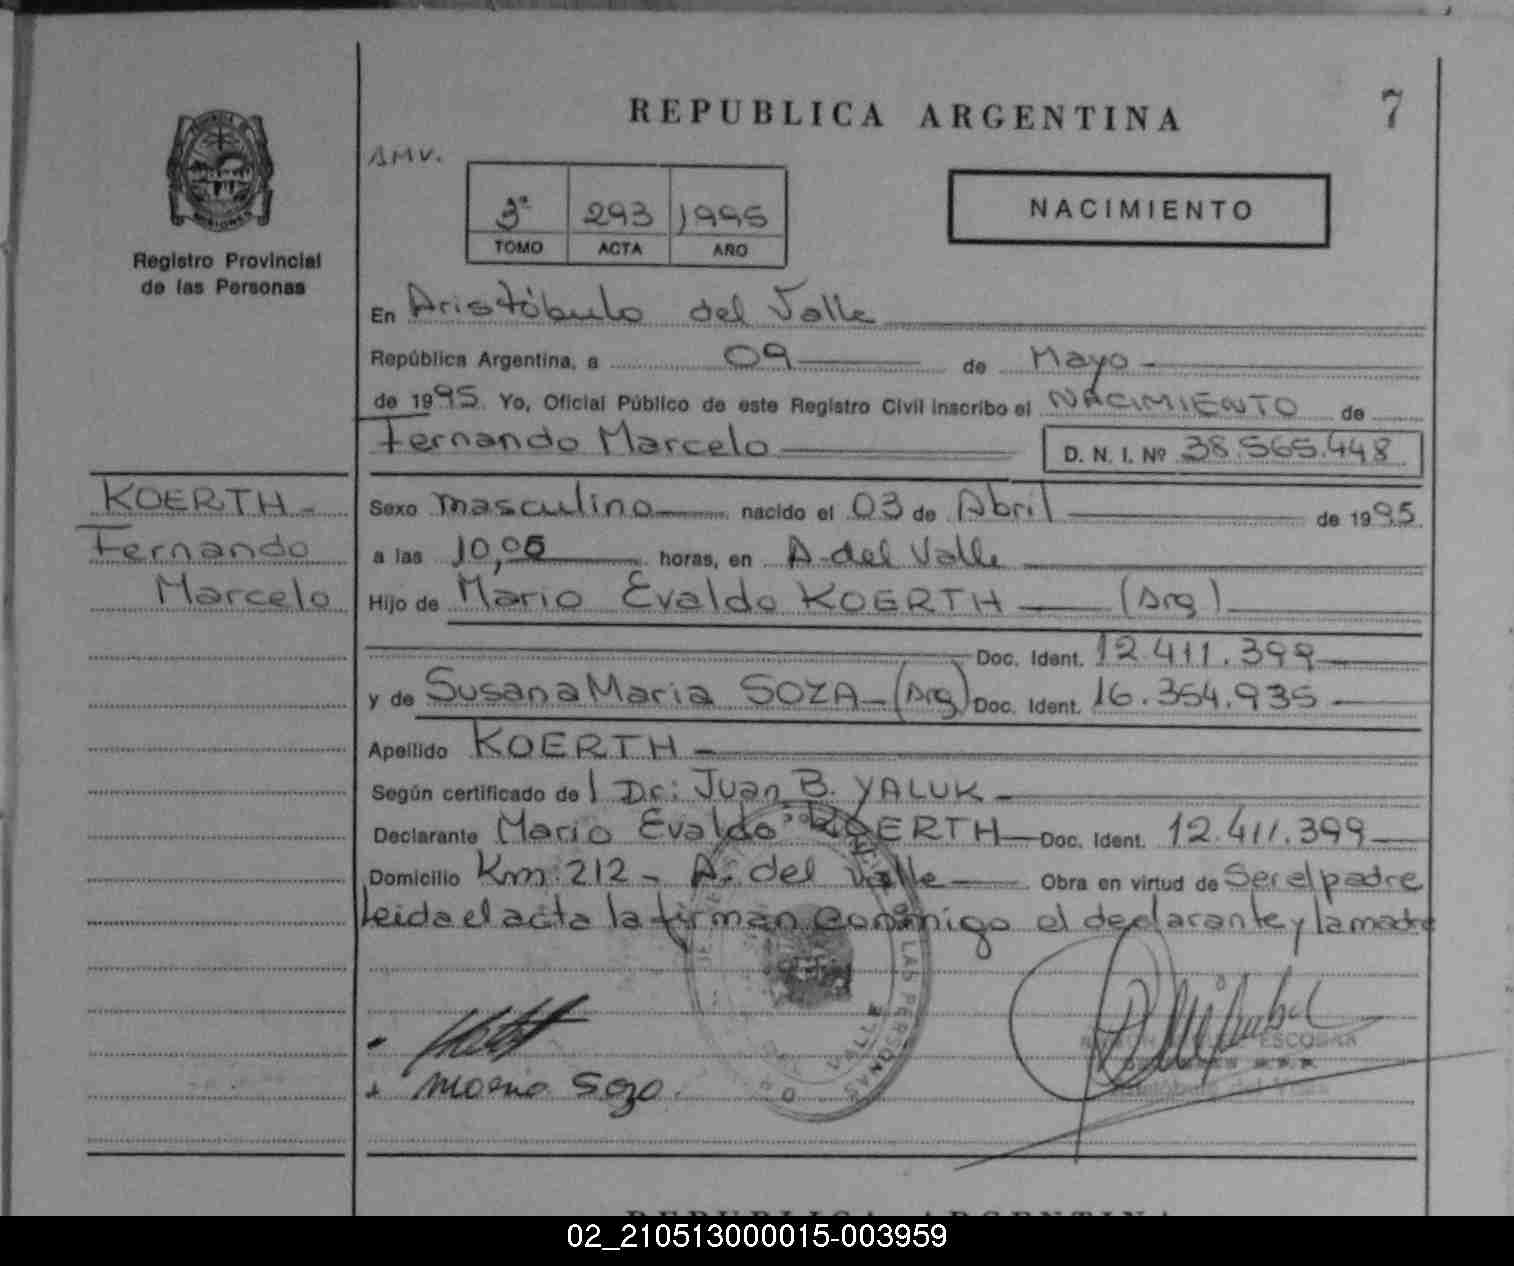 REPUBLICA ARGENTINA
7
AMV.
3ª 293 1995
TOMO ACTA AÑO
NACIMIENTO
Registro Provincial
de las Personas
En Aristóbulo del Valle
República Argentina, a 09 de Mayo
de 1995. Yo, Oficial Público de este Registro Civil inscribo el NACIMIENTO de
Fernando Marcelo D. N. I. Nº 38.565.448
KOERTH -
Fernando
Marcelo
Sexo masculino nacido el 03 de Abril de 1995.
a las 10,05 horas, en A. del Valle
Hijo de Mario Evaldo KOERTH (Arg)
Doc. Ident. 12.411.399
y de Susana Maria SOZA - (Arg) Doc. Ident. 16.354.935
Apellido KOERTH
Según certificado del Dr: Juan B. YALUK
Declarante Mario Evaldo KOERTH Doc. Ident. 12.411.399
Domicilio Km: 212 - A. del Valle Obra en virtud de Ser el padre
Leida el acta la firman conmigo el declarante y la madre
DE LAS PERSONAS
VALLE
ESCOBAR
Maria Soza.
REPUBLICA ARGENTINA
02_210513000015-003959